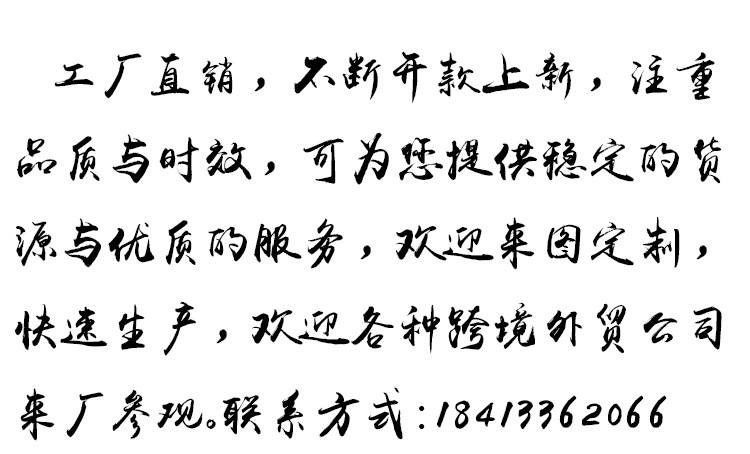 工厂直销，不断开款上新，注重
品质与时效，可为您提供稳定的货
源与优质的服务，欢迎来图定制，
快速生产，欢迎各种跨境外贸公司
来厂参观。联系方式:18413362066